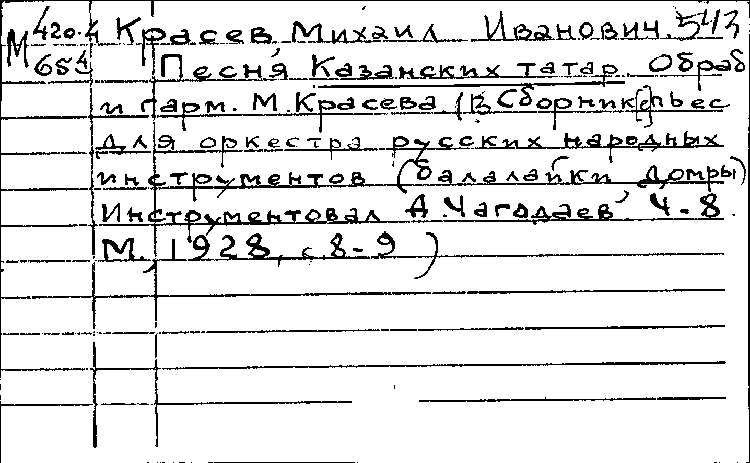 М 420.4 Красев, Михаил Иванович. 543
684 Песня Казанских татар. Обраб
и гарм. М. Красева (В Сборник[е] пьес
для оркестра русских народных
инструментов (балалайки, домры)
Инструментовал А. Чагодаев, Ч-8.
М., 1928, с. 8-9)